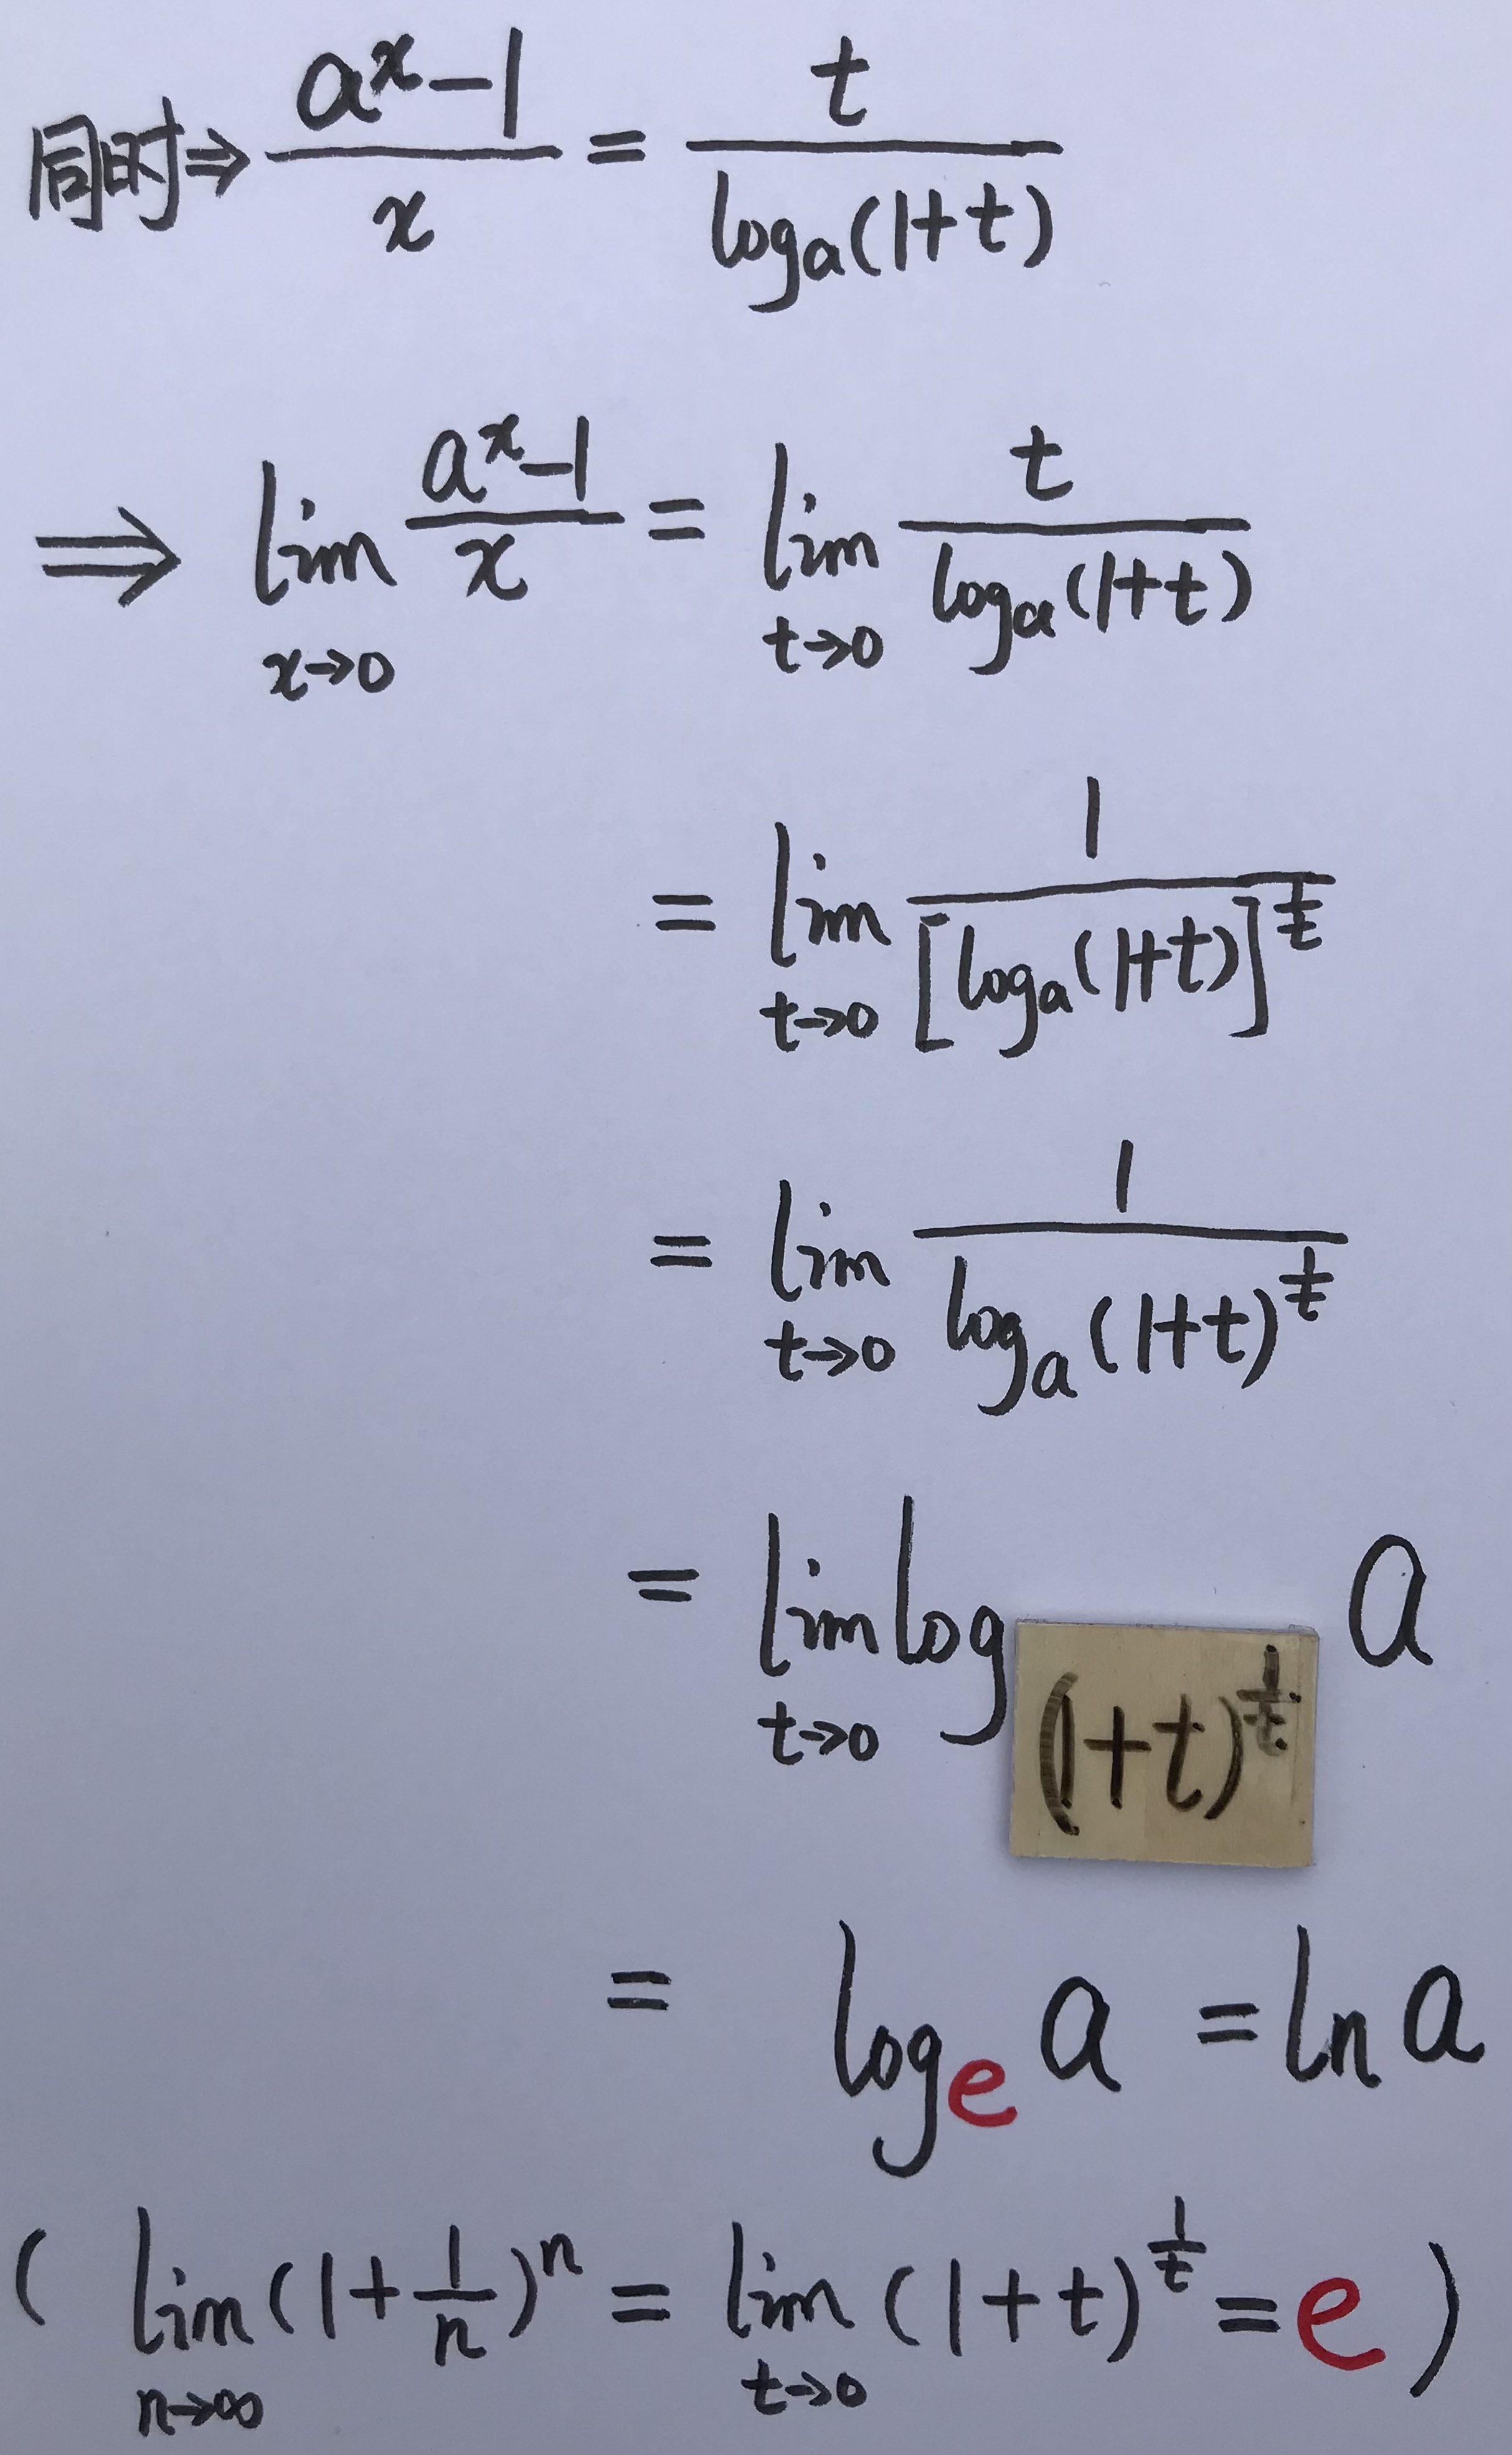 同时⇒ (a^x-1)/x = t/(log_a(1+t))
⇒ lim_{x→0} (a^x-1)/x = lim_{t→0} t/(log_a(1+t))
= lim_{t→0} 1/([log_a(1+t)]^{1/t})
= lim_{t→0} 1/(log_a(1+t)^{1/t})
= lim_{t→0} log_{(1+t)^{1/t}} a
= log_e a = ln a
( lim_{n→∞} (1+1/n)^n = lim_{t→0} (1+t)^{1/t} = e )